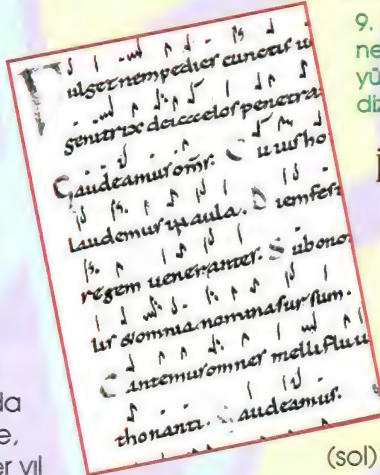 9.
ne
yü
ulget nempe dies cunctis u
genitrix dei celos penetra
Gaudeamus omr. Cuius ho
Laudemus aula. Diem fest
regem ueneranter. Subono
omnia nomina sursum.
Cantemus omnes mellifluu
thonanti. Gaudeamus.
da
e,
er yıl
(sol)